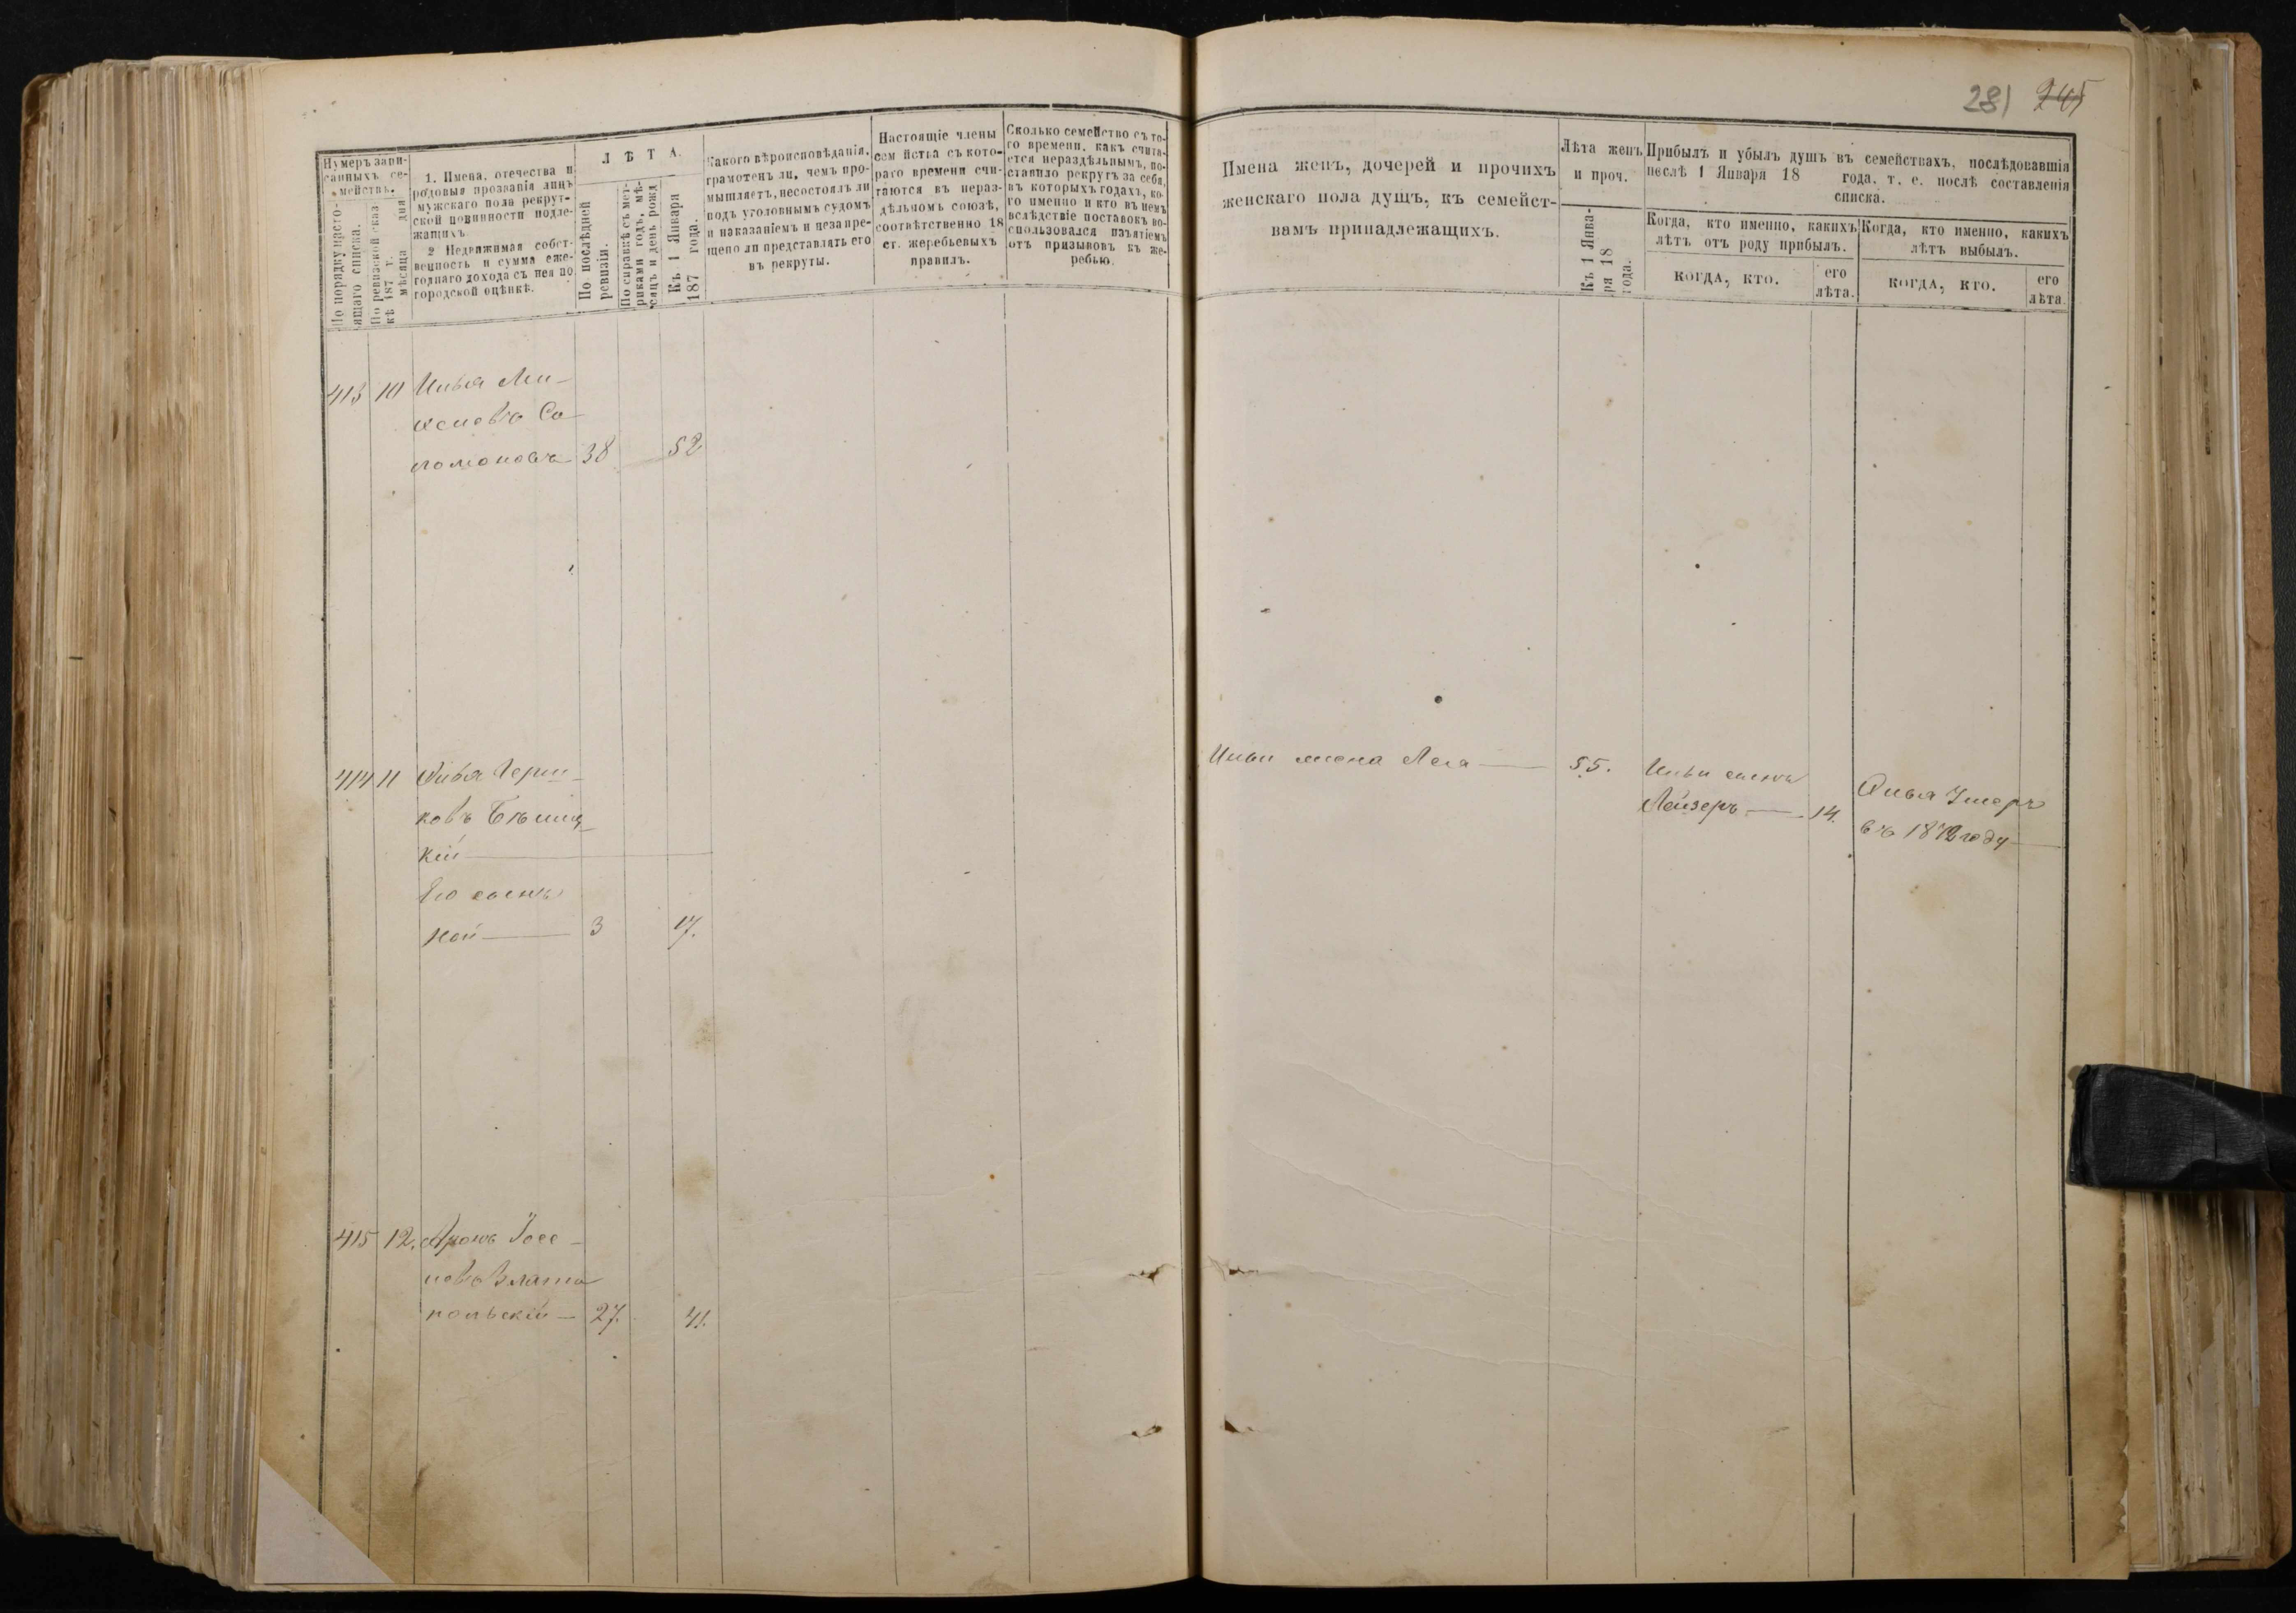 281 245
Нумеръ запи-
санныхъ се-
мействъ.
По порядку насто-
ящаго списка.
По ревизской сказ
кѣ 187 г.
мѣсяца дня
1. Имена, отечества и
родовыя прозванія лицъ
мужскаго пола рекрут-
ской повинности подле-
жащихъ.
2 Недвижимая собст-
венность и сумма еже-
годнаго дохода съ нея по
городской оцѣнкѣ.
ЛѢТА.
По послѣдней
ревизіи.
По справкѣ съ мет-
риками годъ, мѣ-
сяцъ и день рожд
Къ 1 Января
187 года.
Какого вѣроисповѣданія,
грамотенъ ли, чемъ про-
мышляетъ, несостоялъ ли
подъ уголовнымъ судомъ
и наказаніемъ и незапре-
щено ли представлять его
въ рекруты.
Настоящіе члены
сем йства съ кото-
раго времени счи-
таются въ нераз-
дѣльномъ союзѣ,
соотвѣтственно 18
ст. жеребьевыхъ
правилъ.
Сколько семейство съ то-
го времени, какъ счита-
ется нераздѣльнымъ, по-
ставило рекругъ за себя,
въ которыхъ годахъ, ко-
го именно и кто въ немъ
вслѣдствіе поставокъ во-
спользовался изъятіемъ
отъ призывовъ къ же-
ребью.
Имена женъ, дочерей и прочихъ
женскаго пола душъ, къ семейст-
вамъ принадлежащихъ.
Лѣта женъ
и проч.
Къ 1 Янва-
ря 18
года.
Прибылъ и убылъ душъ въ семействахъ, послѣдовавшія
послѣ 1 Января 18 года. т. е. послѣ составленія
списка.
Когда, кто именно, какихъ
лѣтъ отъ роду прибылъ.
КОГДА, КТО.
его
лѣта.
Когда, кто именно, какихъ
лѣтъ выбылъ.
КОГДА, КТО.
его
лѣта.
413 10
Со
ломоновъ 38 52
414 11 Герш-
ковъ
кій
Его сынъ
Ной 3 17.
жена 55.
сынъ
Лейзеръ 14.
Умеръ
въ году
415 12. Аронъ Іосе-
новъ Злато
польскій 27. 41.